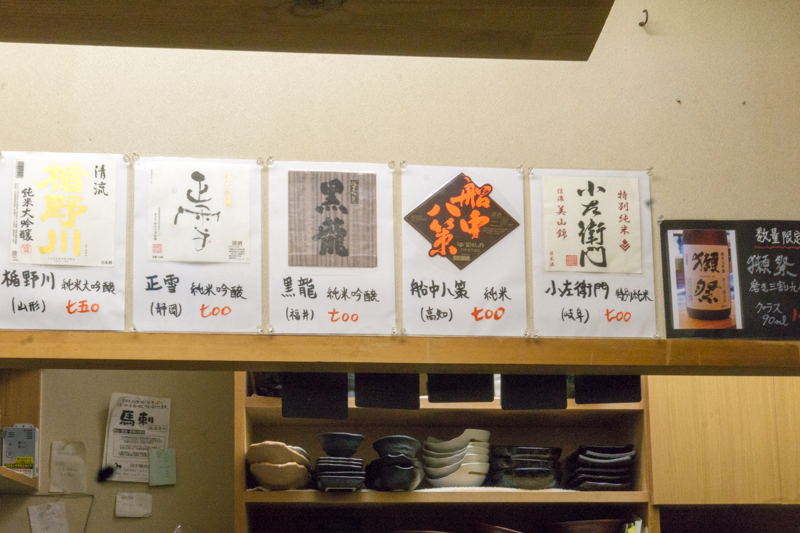 清流
楯野川
純米大吟醸
楯野川 純米大吟醸
(山形) 七五〇
正雪
正雪 純米吟醸
(静岡) 七〇〇
黒龍
黒龍 純米吟醸
(福井) 七〇〇
船中
八策
船中八策 純米
(高知) 七〇〇
特別純米
小左衛門
信濃美山錦
小左衛門 特別純米
(岐阜) 七〇〇
数量限定
獺祭
獺祭
磨き三割九
グラス
90ml
馬刺